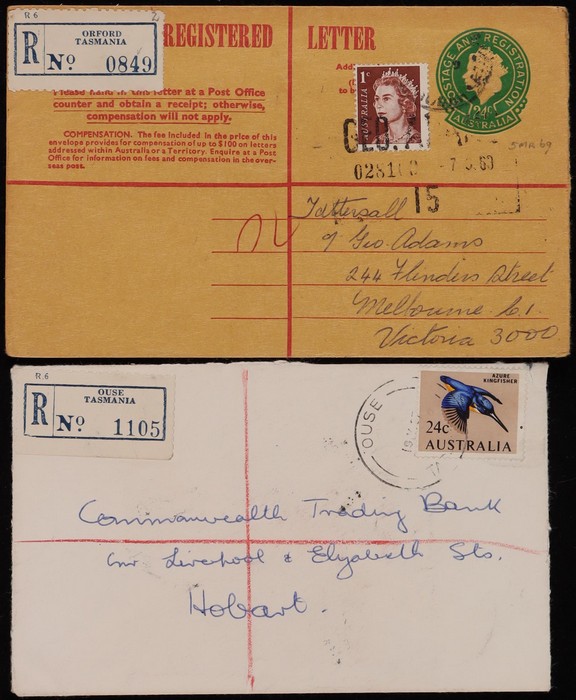 R6
R
ORFORD
TASMANIA
No 0849
REGISTERED LETTER
Please hand in this letter at a Post Office
counter and obtain a receipt; otherwise,
compensation will not apply.
COMPENSATION. The fee included in the price of this
envelope provides for compensation of up to $100 on letters
addressed within Australia or a Territory. Enquire at a Post
Office for information on fees and compensation in the over-
seas post.
1c
AUSTRALIA
POSTAGE AND REGISTRATION
AUSTRALIA
5 MR 69
15
Tattersall
c/ Geo. Adams
244 Flinders Street
Melbourne C.1.
Victoria 3000
R.6
R
OUSE
TASMANIA
No 1105
OUSE
AZURE
KINGFISHER
24c
AUSTRALIA
Commonwealth Trading Bank
Cnr Liverpool & Elizabeth Sts.
Hobart.